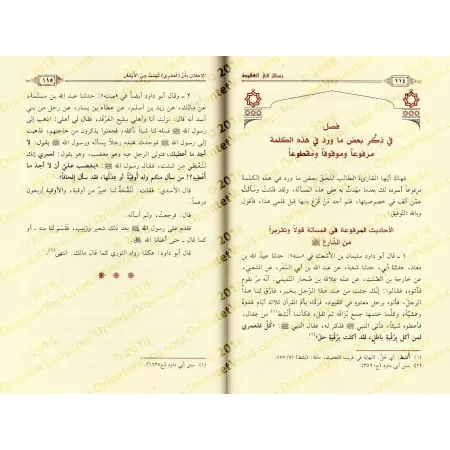 رسائل في العقيدة
١١٤
فصل
في ذكر بعض ما ورد في هذه الكلمة
مرفوعاً وموقوفاً ومقطوعاً
فهاك أيها القارئ الطالب للحق بعض ما ورد في هذه الكلمة
مرفوعاً أسوده لك بعدما مهدتُ به على هذه المسألة، ولقد فتشت وسألت
عمّن ألف في خصوصيتها، فلم أجد مَنْ فَرَّغ بابها قبل قلمي هذا، فأقول
وبالله التوفيق:
الأحاديث المرفوعة في المسألة قولاً وتقريراً
من الشارع ﷺ
١ ـ قال أبو داود سليمان بن الأشعث في «سننه»: حدثنا عبيد الله بن
معاذ، حدثنا أبي، حدثنا شعبة، عن عبد الله بن أبي السَّفَر، عن الشعبي،
عن خارجة بن الصَّلت، عن عمه علاقة بن صُحَار التميمي: أنه مرَّ بقوم
فأتوه، فقالوا: إنك جئت من عند هذا الرجل بخير، فارْقِ لنا هذا
الرجل، فأتوه برجل معتوه في القيود، فرقاه بأم القرآن ثلاثة أيام غدوةً
وعشيةً، وكلما ختمها جمع بُزاقه ثم تفل، فكأنما أُنشط(١) من عقال،
فأعطوه شيئاً، فأتى النبي ﷺ فذكره له، فقال النبي ﷺ: «كُلْ فلعمري
لمن أكل برقيةٍ باطلٍ، لقد أكلت برقيةٍ حقٍّ»(٢)
(١) أُنشط: أي حُلّ. النهاية في غريب الحديث، مادة: (نشط) (٥٧/٥)
(٢) سنن أبي داود (ح٣٤٢٠)
الإعلان بأن (لعمري) ليست من الأيمان
١١٥
٢ ـ وقال أبو داود أيضاً في «سننه»: حدثنا عبد الله بن مسلمة،
عن مالك، عن زيد بن أسلم، عن عطاء بن يسار، عن رجل من بني
أسد أنه قال: نزلت أنا وأهلي ببقيع الغرقد، فقال لي أهلي: اذهب إلى
رسول الله ﷺ فسله لنا شيئاً نأكله، فجعلوا يذكرون من حاجتهم، فذهبت
إلى رسول الله ﷺ فوجدت عنده رجلاً يسأله ورسول الله ﷺ يقول: لا
أجد ما أعطيك، فتولى الرجل عنه وهو مغضب، وهو يقول: لعمري إنك
لتُعطي من شئت، قال رسول الله ﷺ: «يغضب عليَّ أن لا أجد ما
أعطيه؟! من سأل منكم وله أوقيةٌ أو عِدلها، فقد سأل إلحافاً».
قال الأسدي: فقلت: للَقْحةٌ لنا خير من أوقية، والأوقية أربعون
درهماً.
قال: فرجعتُ، ولم أسأله.
فقدم على رسول الله ﷺ بعد ذلك شعير وزبيب، فقسَمَ لنا منه ـ أو
كما قال ـ حتى أغنانا الله ﷿.
قال أبو داود: هكذا رواه الثوري كما قال مالك. انتهى(١)
(١) سنن أبي داود (ح١٦٢٧)